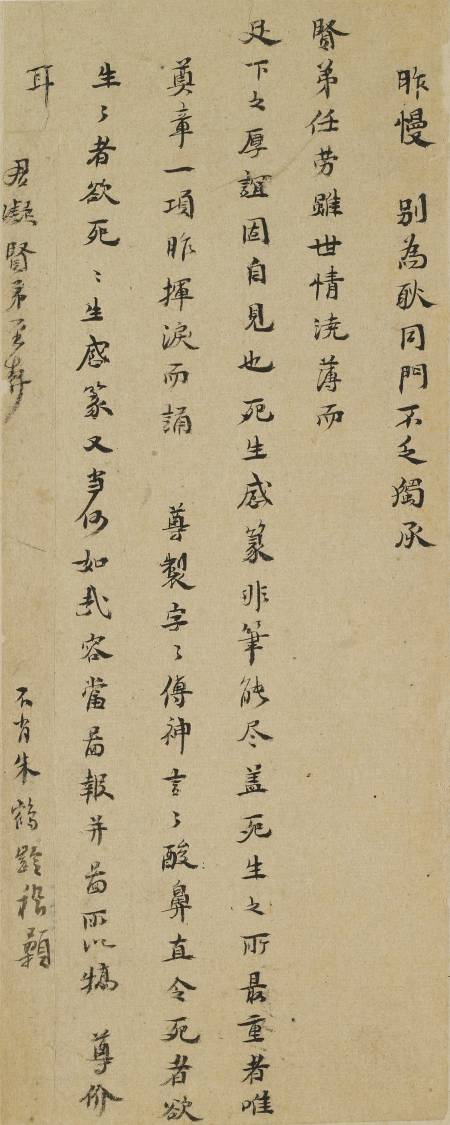 昨慢　别為耿同門不乏獨承
賢弟任劳雖世情澆薄而
足下之厚誼固自見也死生感篆非筆能尽盖死生之所最重者唯
奠章一項昨揮淚而誦　尊製字〻傳神言〻酸鼻直令死者欲
生〻者欲死〻生感篆又当何如哉容當啚報并啚所以犒　尊价
耳
君凝賢弟至契
不肖朱鶴齡稽顙